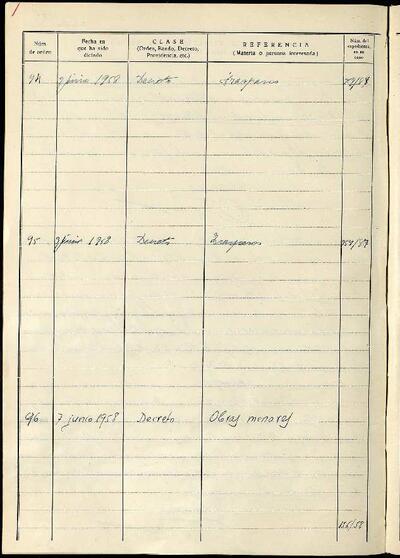 Núm. de orden
Fecha en que ha sido dictado
CLASE
(Orden, Bando, Decreto, Providencia, etc.)
REFERENCIA
(Materia o persona interesada)
Núm. del expediente, en su caso
94 junio 1958 Decreto Traspasos
95 junio 1958 Decreto Traspasos
96 7 junio 1958 Decreto Obras menores